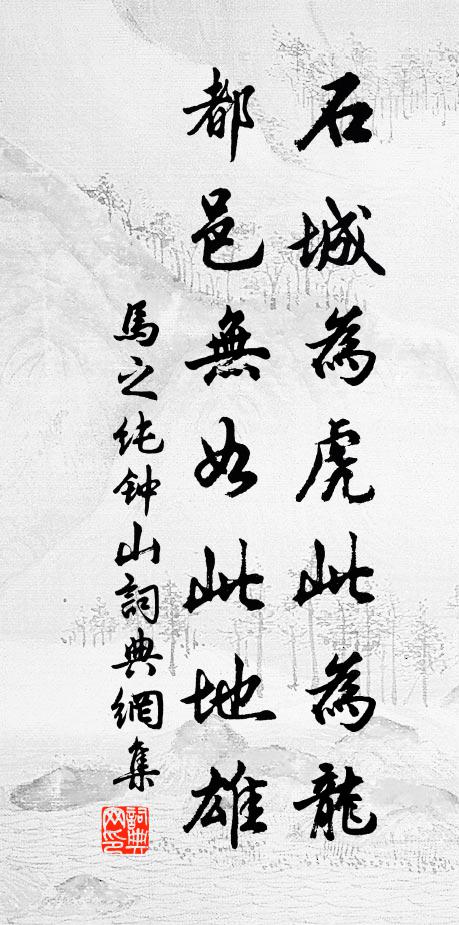 石城為虎此為龍
都邑無如此地雄
馬之純钟山詞典網集
詞典網印